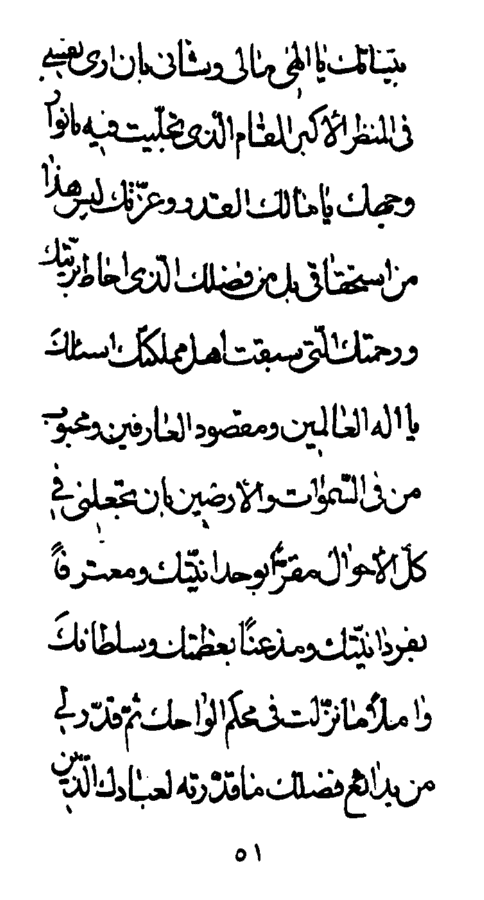 ببیناتک یا الهی مالی وشانی بان اری نفسی
فی المنظر الاکبر المقام الّذی تجلّیت فیه بانوار
وجهک یا مالک القدر وعزّتک لیس هذا
من استحقاقی بل من فضلک الّذی احاط بریّتک
ورحمتک الّتی سبقت اهل مملکتک اسئلک
یا اله العالمین ومقصود العارفین ومحبوب
من فی السّموات والارضین بان تجعلنی فی
کلّ الاحوال مقرّاً بوحدانیّتک ومعترفاً
بفردانیّتک ومذعناً بعظمتک وسلطانک
و ما نزّلت فی محکم الواحک ثمّ قدّر لی
من بدائع فضلک ما قدّرته لعبادک الّذین
٥١